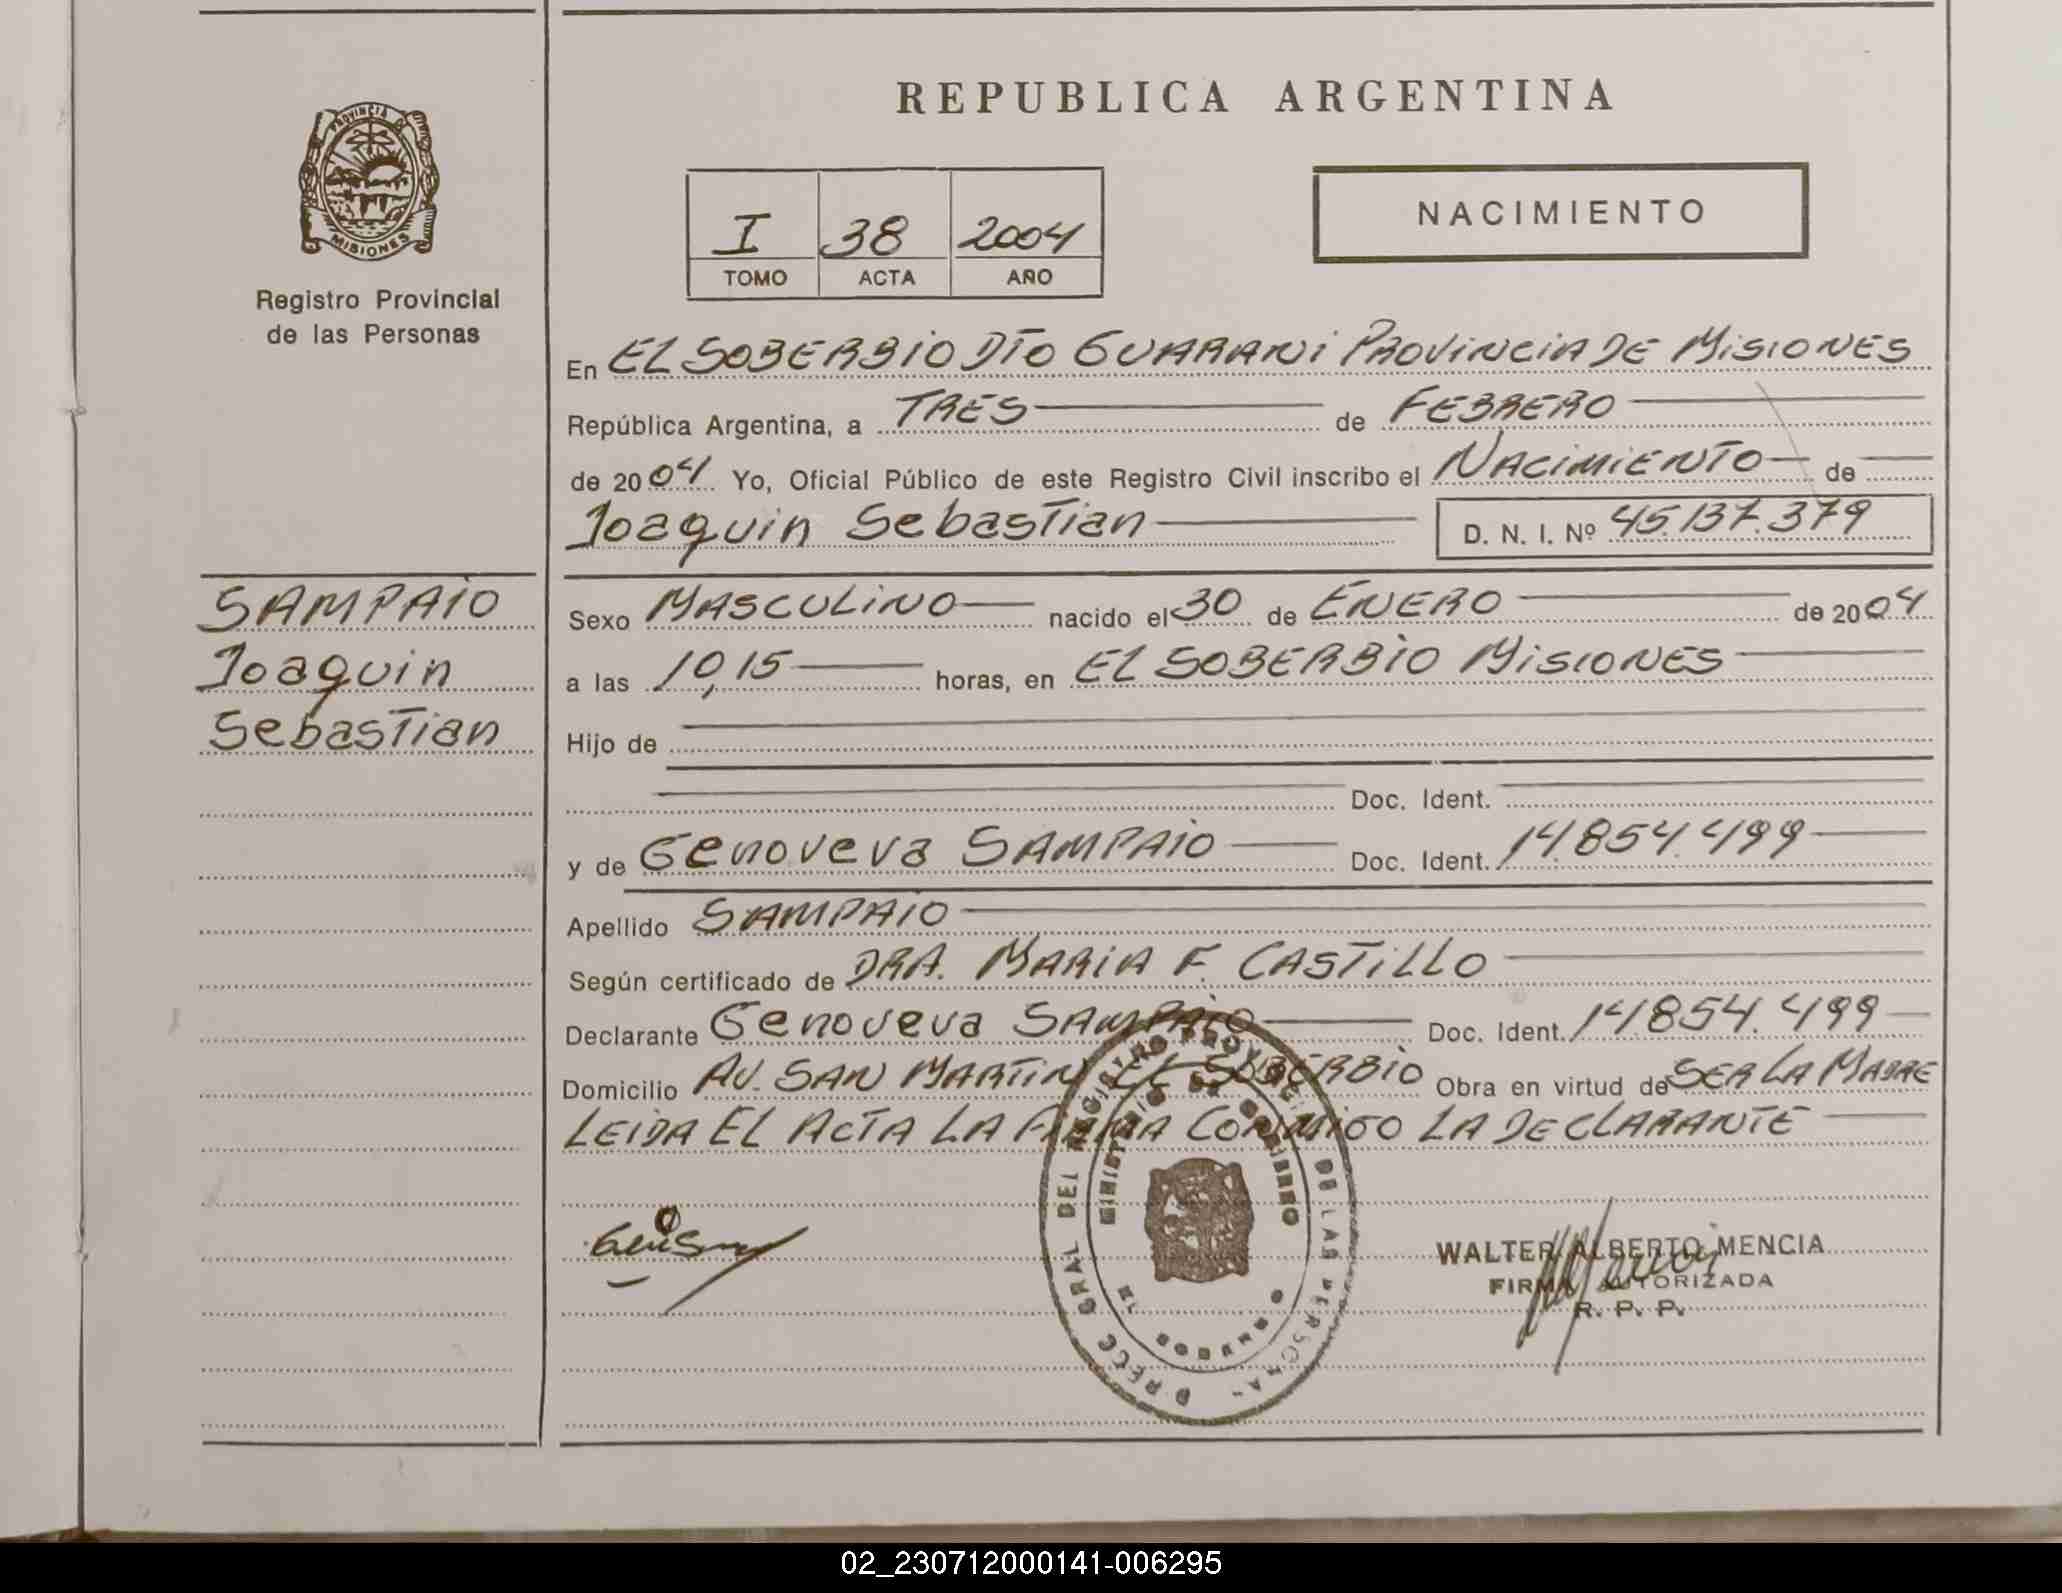 REPUBLICA ARGENTINA
PROVINCIA DE
MISIONES
Registro Provincial
de las Personas
I 38 2004
TOMO ACTA AÑO
NACIMIENTO
En EL SOBERBIO DTO GUARANI PROVINCIA DE MISIONES
República Argentina, a TRES de FEBRERO
de 2004 Yo, Oficial Público de este Registro Civil inscribo el NACIMIENTO de
Joaquin Sebastian D. N. I. Nº 45.137.379
SAMPAIO
Joaquin
Sebastian
Sexo MASCULINO nacido el 30 de ENERO de 2004
a las 10,15 horas, en EL SOBERBIO MISIONES
Hijo de
Doc. Ident.
y de Genoveva SAMPAIO Doc. Ident. 14.854.499
Apellido SAMPAIO
Según certificado de DRA. MARIA F. CASTILLO
Declarante Genoveva SAMPAIO Doc. Ident. 14.854.499
Domicilio AV. SAN MARTIN EL SOBERBIO Obra en virtud de SER LA MADRE
LEIDA EL ACTA LA FIRMA CONMIGO LA DECLARANTE
DIRECC GRAL DEL REGISTRO PROVINCIAL DE LAS PERSONAS
MINISTERIO DE GOBIERNO
WALTER ALBERTO MENCIA
FIRMA AUTORIZADA
R. P. P.
02_230712000141-006295